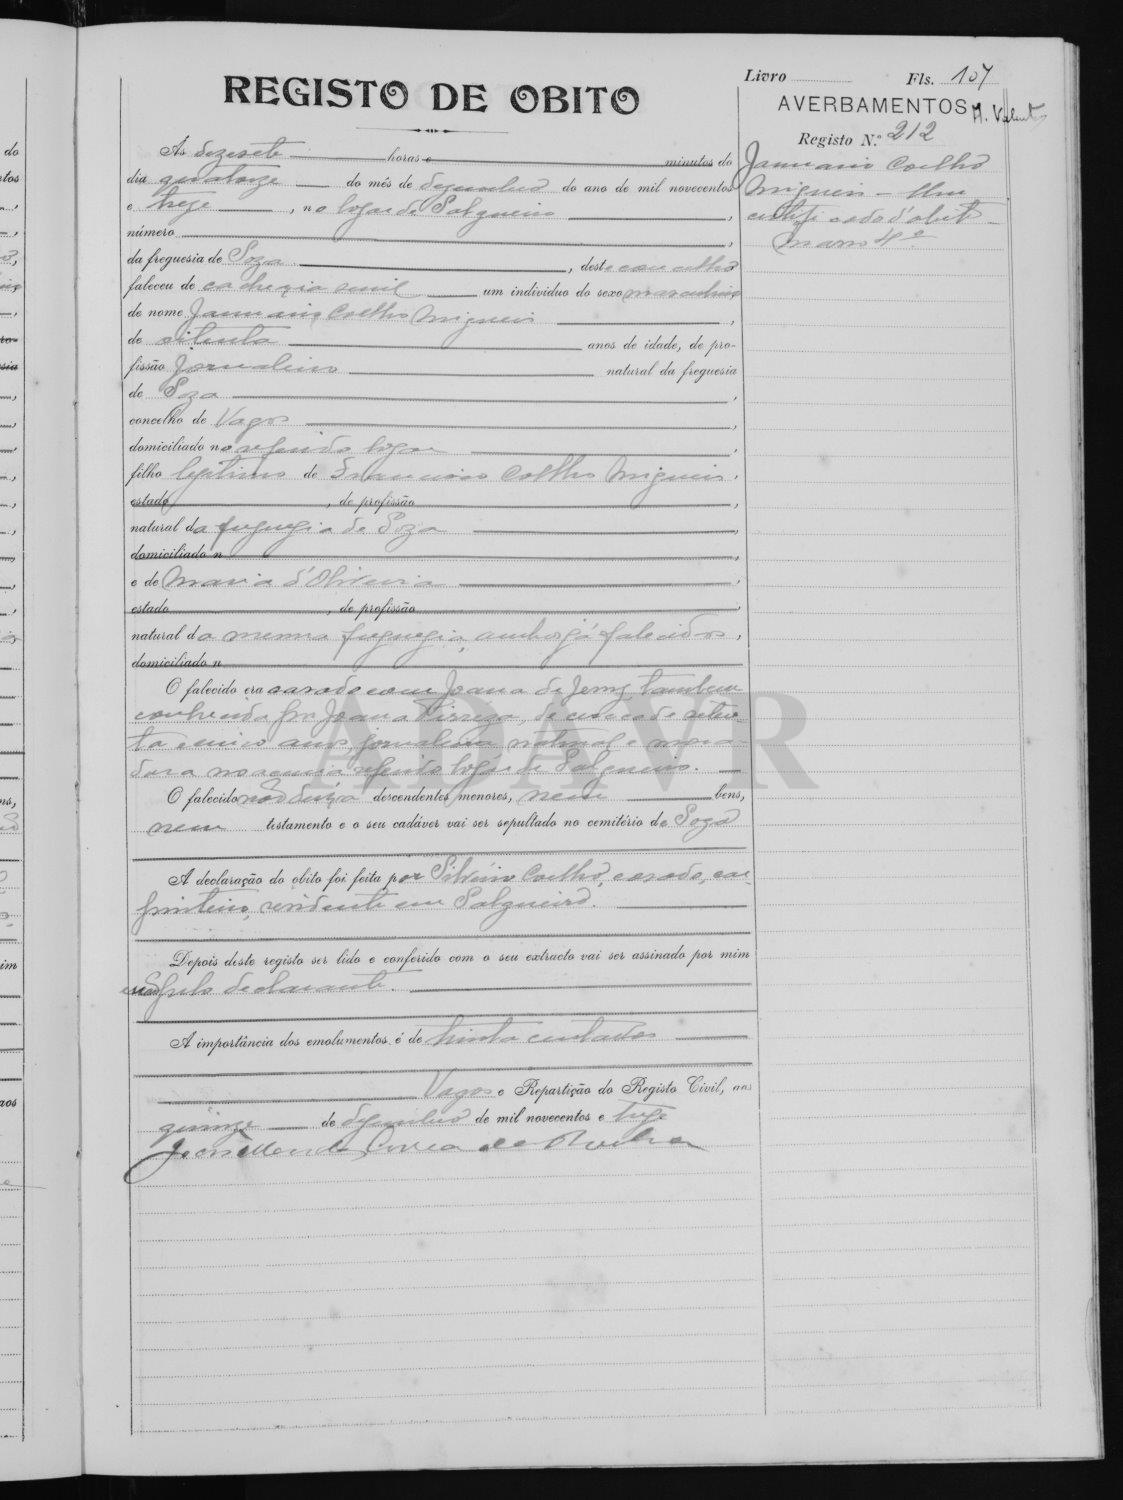 Livro Fls. 107
REGISTO DE OBITO
AVERBAMENTOS
Registo N.º 212
Januario Coelho
Migueis — Um
certificado d'obito
maço 4º
Ás dezesete horas e minutos do
dia quatorze do mês de dezembro do ano de mil novecentos
e treze, no logar de Salgueiro,
número
da freguesia de Soza, deste concelho
faleceu de cachexia senil um individuo do sexo masculino
de nome Januario Coelho Migueis,
de oitenta anos de idade, de pro-
fissão Jornaleiro natural da freguesia
de Soza,
concelho de Vagos,
domiciliado no referido logar,
filho legitimo de Francisco Coelho Migueis,
estado, de profissão,
natural da freguezia de Soza,
domiciliado n,
e de Maria d'Oliveira,
estado, de profissão,
natural da mesma freguezia, ambos já falecidos,
domiciliado n
O falecido era casado com Joana de Jesus, tambem
conhecida por Joana, de cerca de seten-
ta e cinco anos, jornaleira, natural e mora-
dora no referido logar de Salgueiro.
O falecido não deixa descendentes menores, nem bens,
nem testamento e o seu cadáver vai ser sepultado no cemitério de Soza
A declaração do obito foi feita por Silverio Coelho, casado, car-
pinteiro, residente em Salgueiro.
Depois deste registo ser lido e conferido com o seu extracto vai ser assinado por mim
e não pelo declarante.
A importância dos emolumentos é de trinta centavos
Vagos e Repartição do Registo Civil, aos
quinze de dezembro de mil novecentos e treze
ADAVR